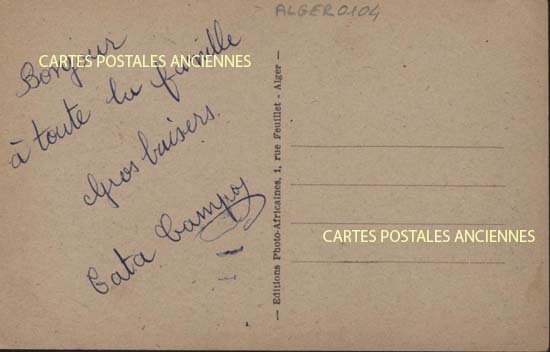 ALGER0104
CARTES POSTALES ANCIENNES
Bonjour
à toute la famille
Gros baisers.
Tata Campoy
— Editions Photo-Africaines, 1, rue Feuillet - Alger —
CARTES POSTALES ANCIENNES